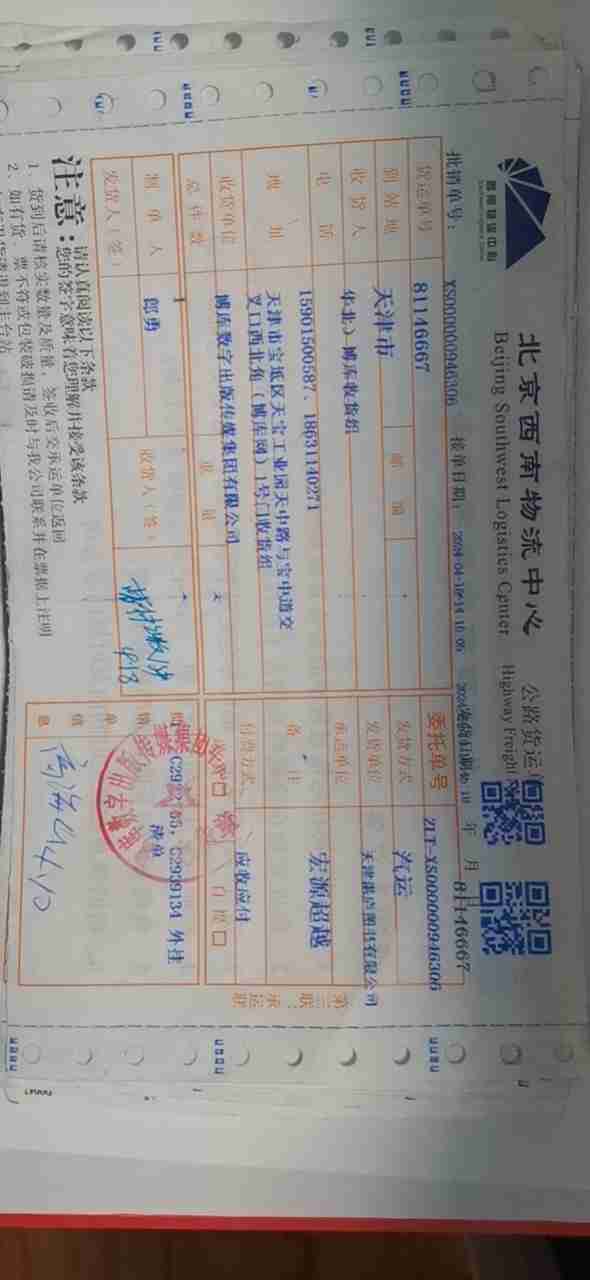 西南物流中心
北京西南物流中心
Beijing Southwest Logistics Center
公路货运
Highway Freight
81146667
批销单号： XS0000000946306 接单日期：
年 月 日
货运单号 81146667
委托单号 ZLT-XS0000000946306
到站地 天津市 邮编
发货方式 汽运
收货人 华北）博库收货组
发货单位
电话 15901500587、18631140271
承运单位 宏源超越
地址 天津市宝坻区天宝工业园天中路与宝中道交
叉口西北角（博库网）1号门收货组
备注
收货单位 博库数字出版传媒集团有限公司
付费方式 应收应付
总件数 总重量
自提
制单人 郎勇
收货人（签）
发货人（签）
4/13
C2939134 外挂
清单
第三联 承运联
注意：
请认真阅读以下条款
您的签字意味着您理解并接受该条款
1、货到后请核实数量及质量，签收后交承运单位返回
2、如有货、票不符或包装破损请及时与我公司联系并在票据上注明